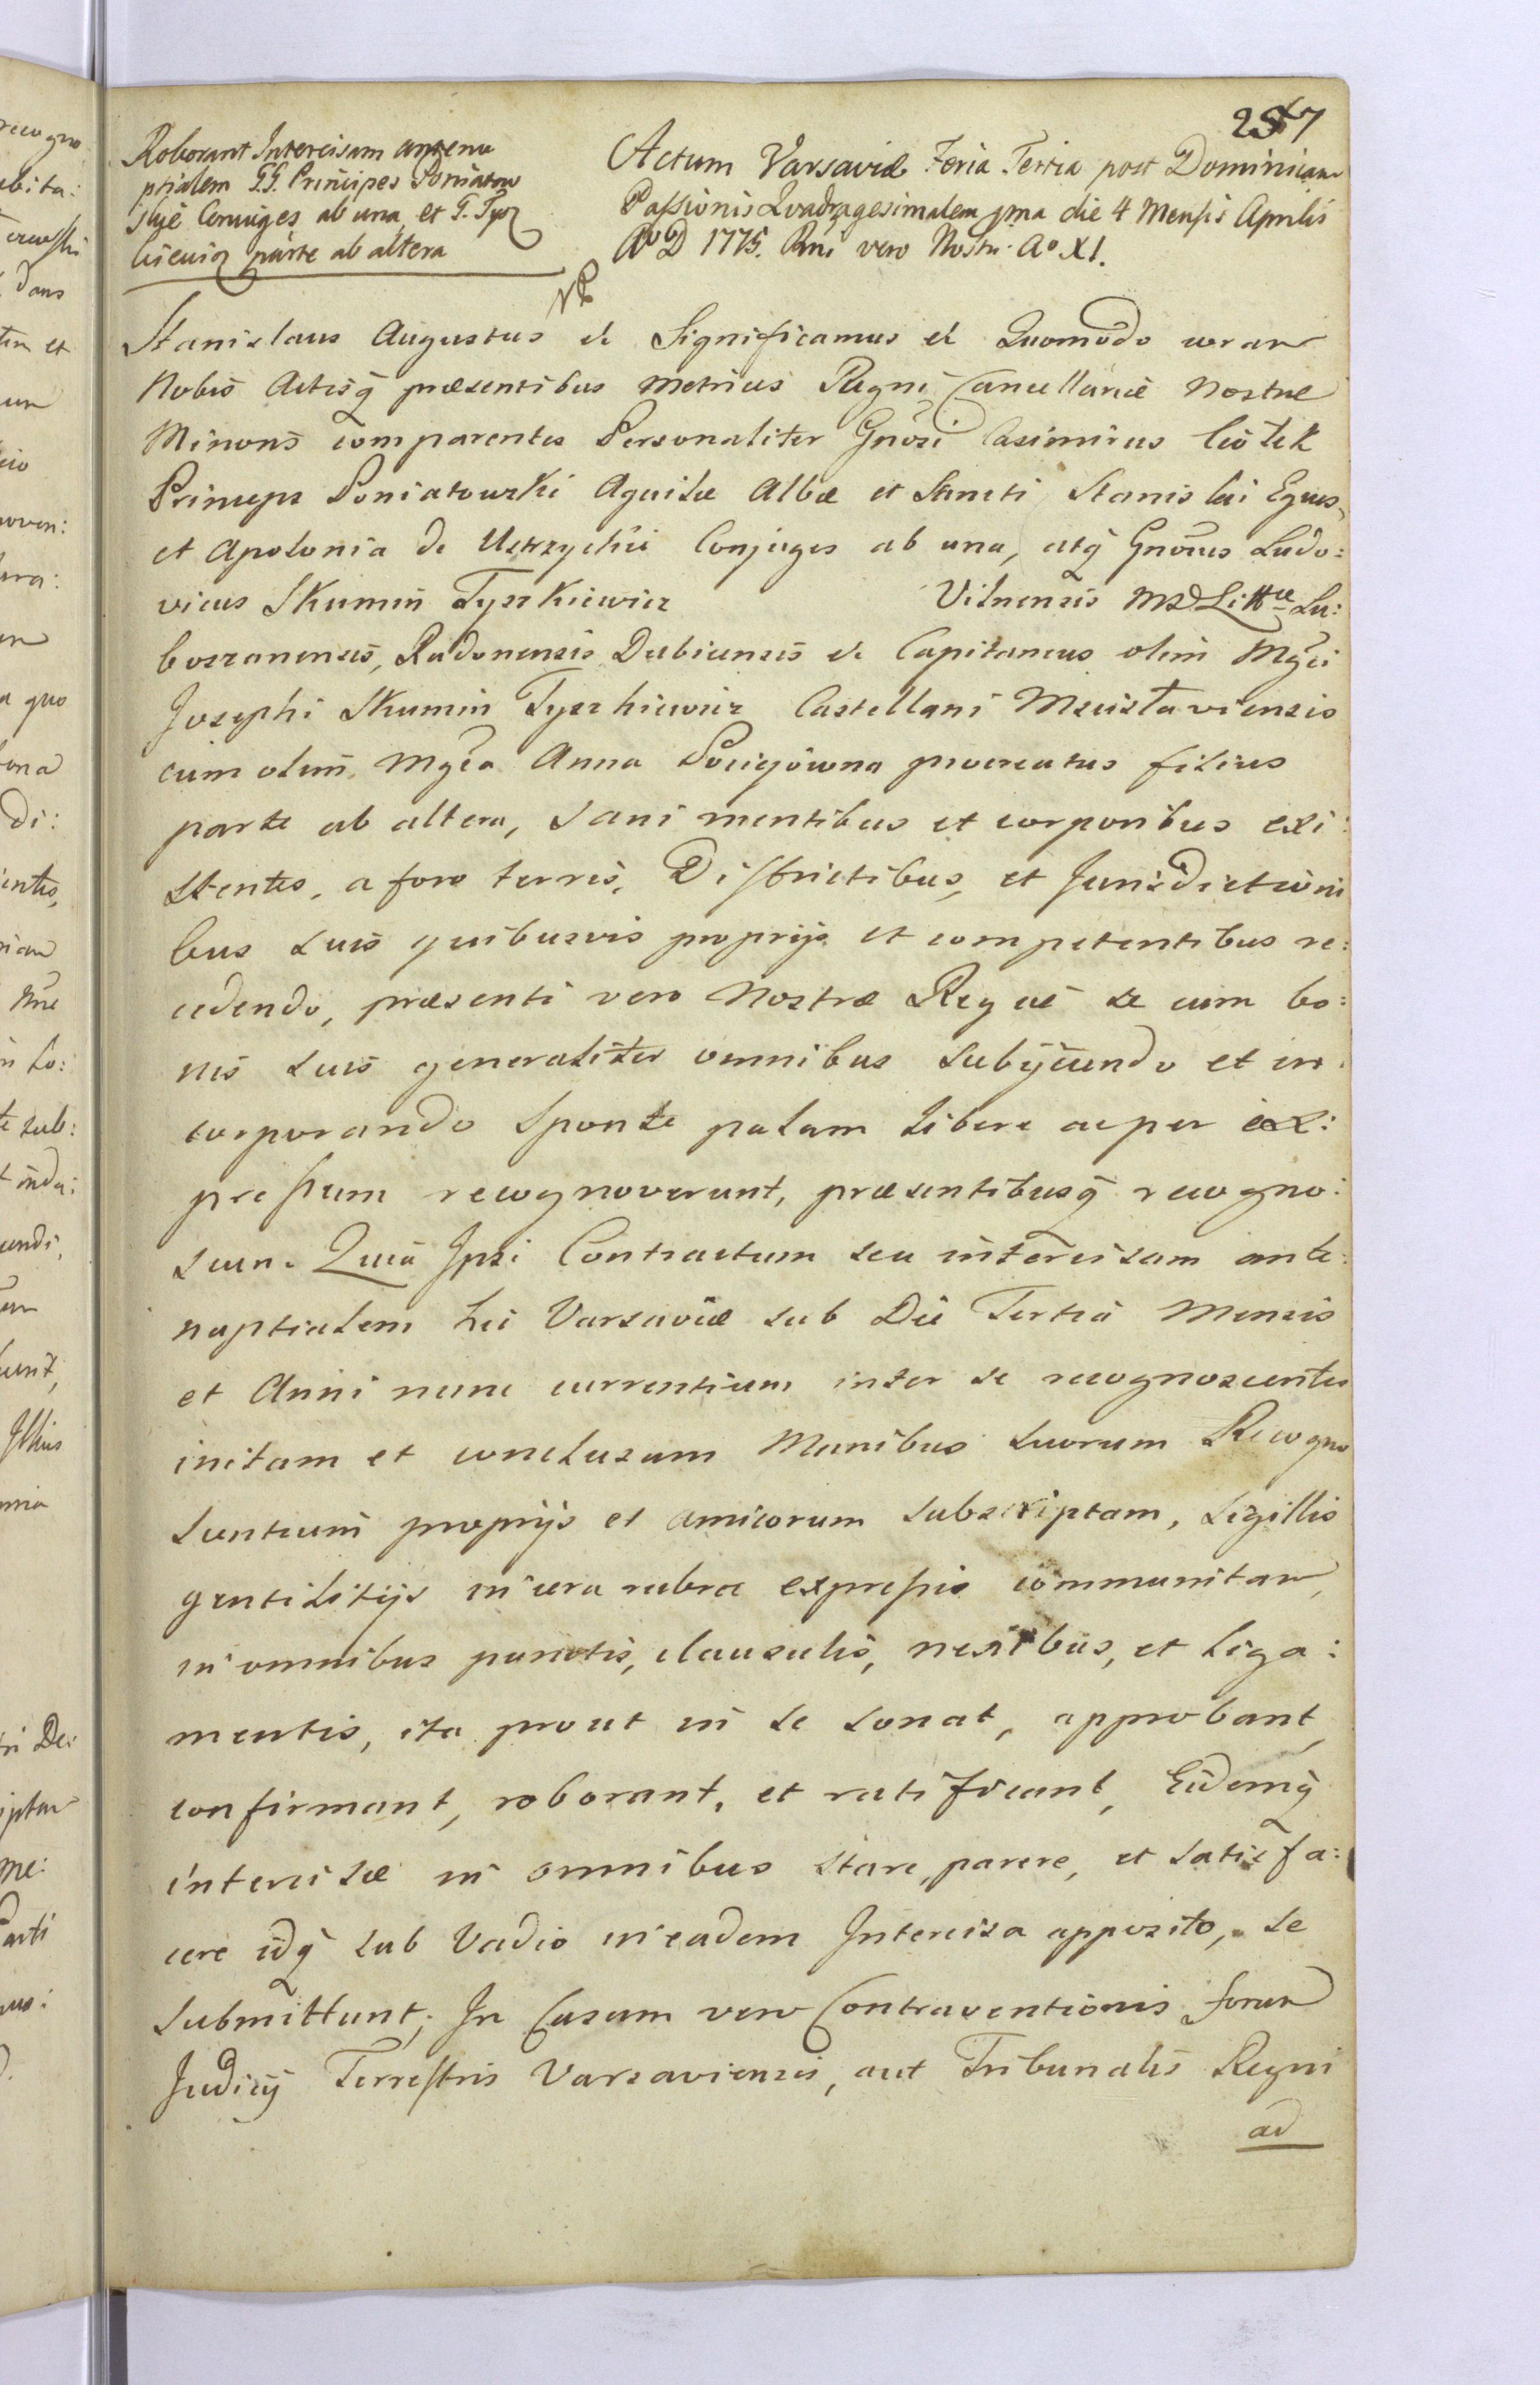 257
Roborant Intercisam antenu
ptialem G.G. Principes Poniatow
skie Coniuges ab una et G. Tysz
kiewicz parte ab altera
Actum Varsaviæ Feria Tertia post Dominicam
Passionis Quadragesimalem pma die 4 Mensis Aprilis
Aº D 1775. Rni vero Nostri Aº XI.
Stanislaus Augustus & Significamus & Quomodo coram
Nobis Actisq præsentibus Metrices Regni Cancellariæ Nostræ
Minoris comparentes Personaliter Gnosi Casimirus Ciołek
Princeps Poniatowski Aquilæ Albæ et Sancti Stanislai Eques,
et Apolonia de Ustrzyckie Conjuges ab una, atq Gnosus Ludo:
vicus Skumin Tyszkiewicz Vilnensis MDLittæ Lu:
boszanensis, Radonensis Dubicensis & Capitaneus olim Mgci
Josephi Skumin Tyszkiewicz Castellani Mscisłaviensis
cum olim Mgca Anna Pociejowna procreatus filius
parte ab altera, sani mentibus et corporibus exi:
stentes, a foro terris, Districtibus, et Jurisdictioni
bus suis quibusvis proprijs et competentibus re:
cedendo, præsenti vero Nostræ Regiæ se cum bo:
nis suis generaliter omnibus subijciendo et in:
corporando sponte palam libere ac per ex:
pressum recognoverunt, præsentibusq recogno:
scun. Quia Ipsi Contractum seu intercisam ante:
nuptialem hic Varsaviæ sub Die Tertia Mensis
et Anni nunc currentium inter se recognoscentes
initam et conclusam Manibus suorum Recogno
scentium proprijs et amicorum subscriptam, sigillis
gentilitijs in cera rubra expressis communitam,
in omnibus punctis, clausulis, nexibus, et liga:
mentis, ita prout in se sonat, approbant,
confirmant, roborant, et ratificant, Eidemq
intercisæ in omnibus stare, parere, et satisfa:
cere idq sub Vadio in eadem Intercisa apposito, se
submittunt; In Casum vero Contraventionis forum
Judicij Terrestris Varsaviensis, aut Tribunalis Regni
ad